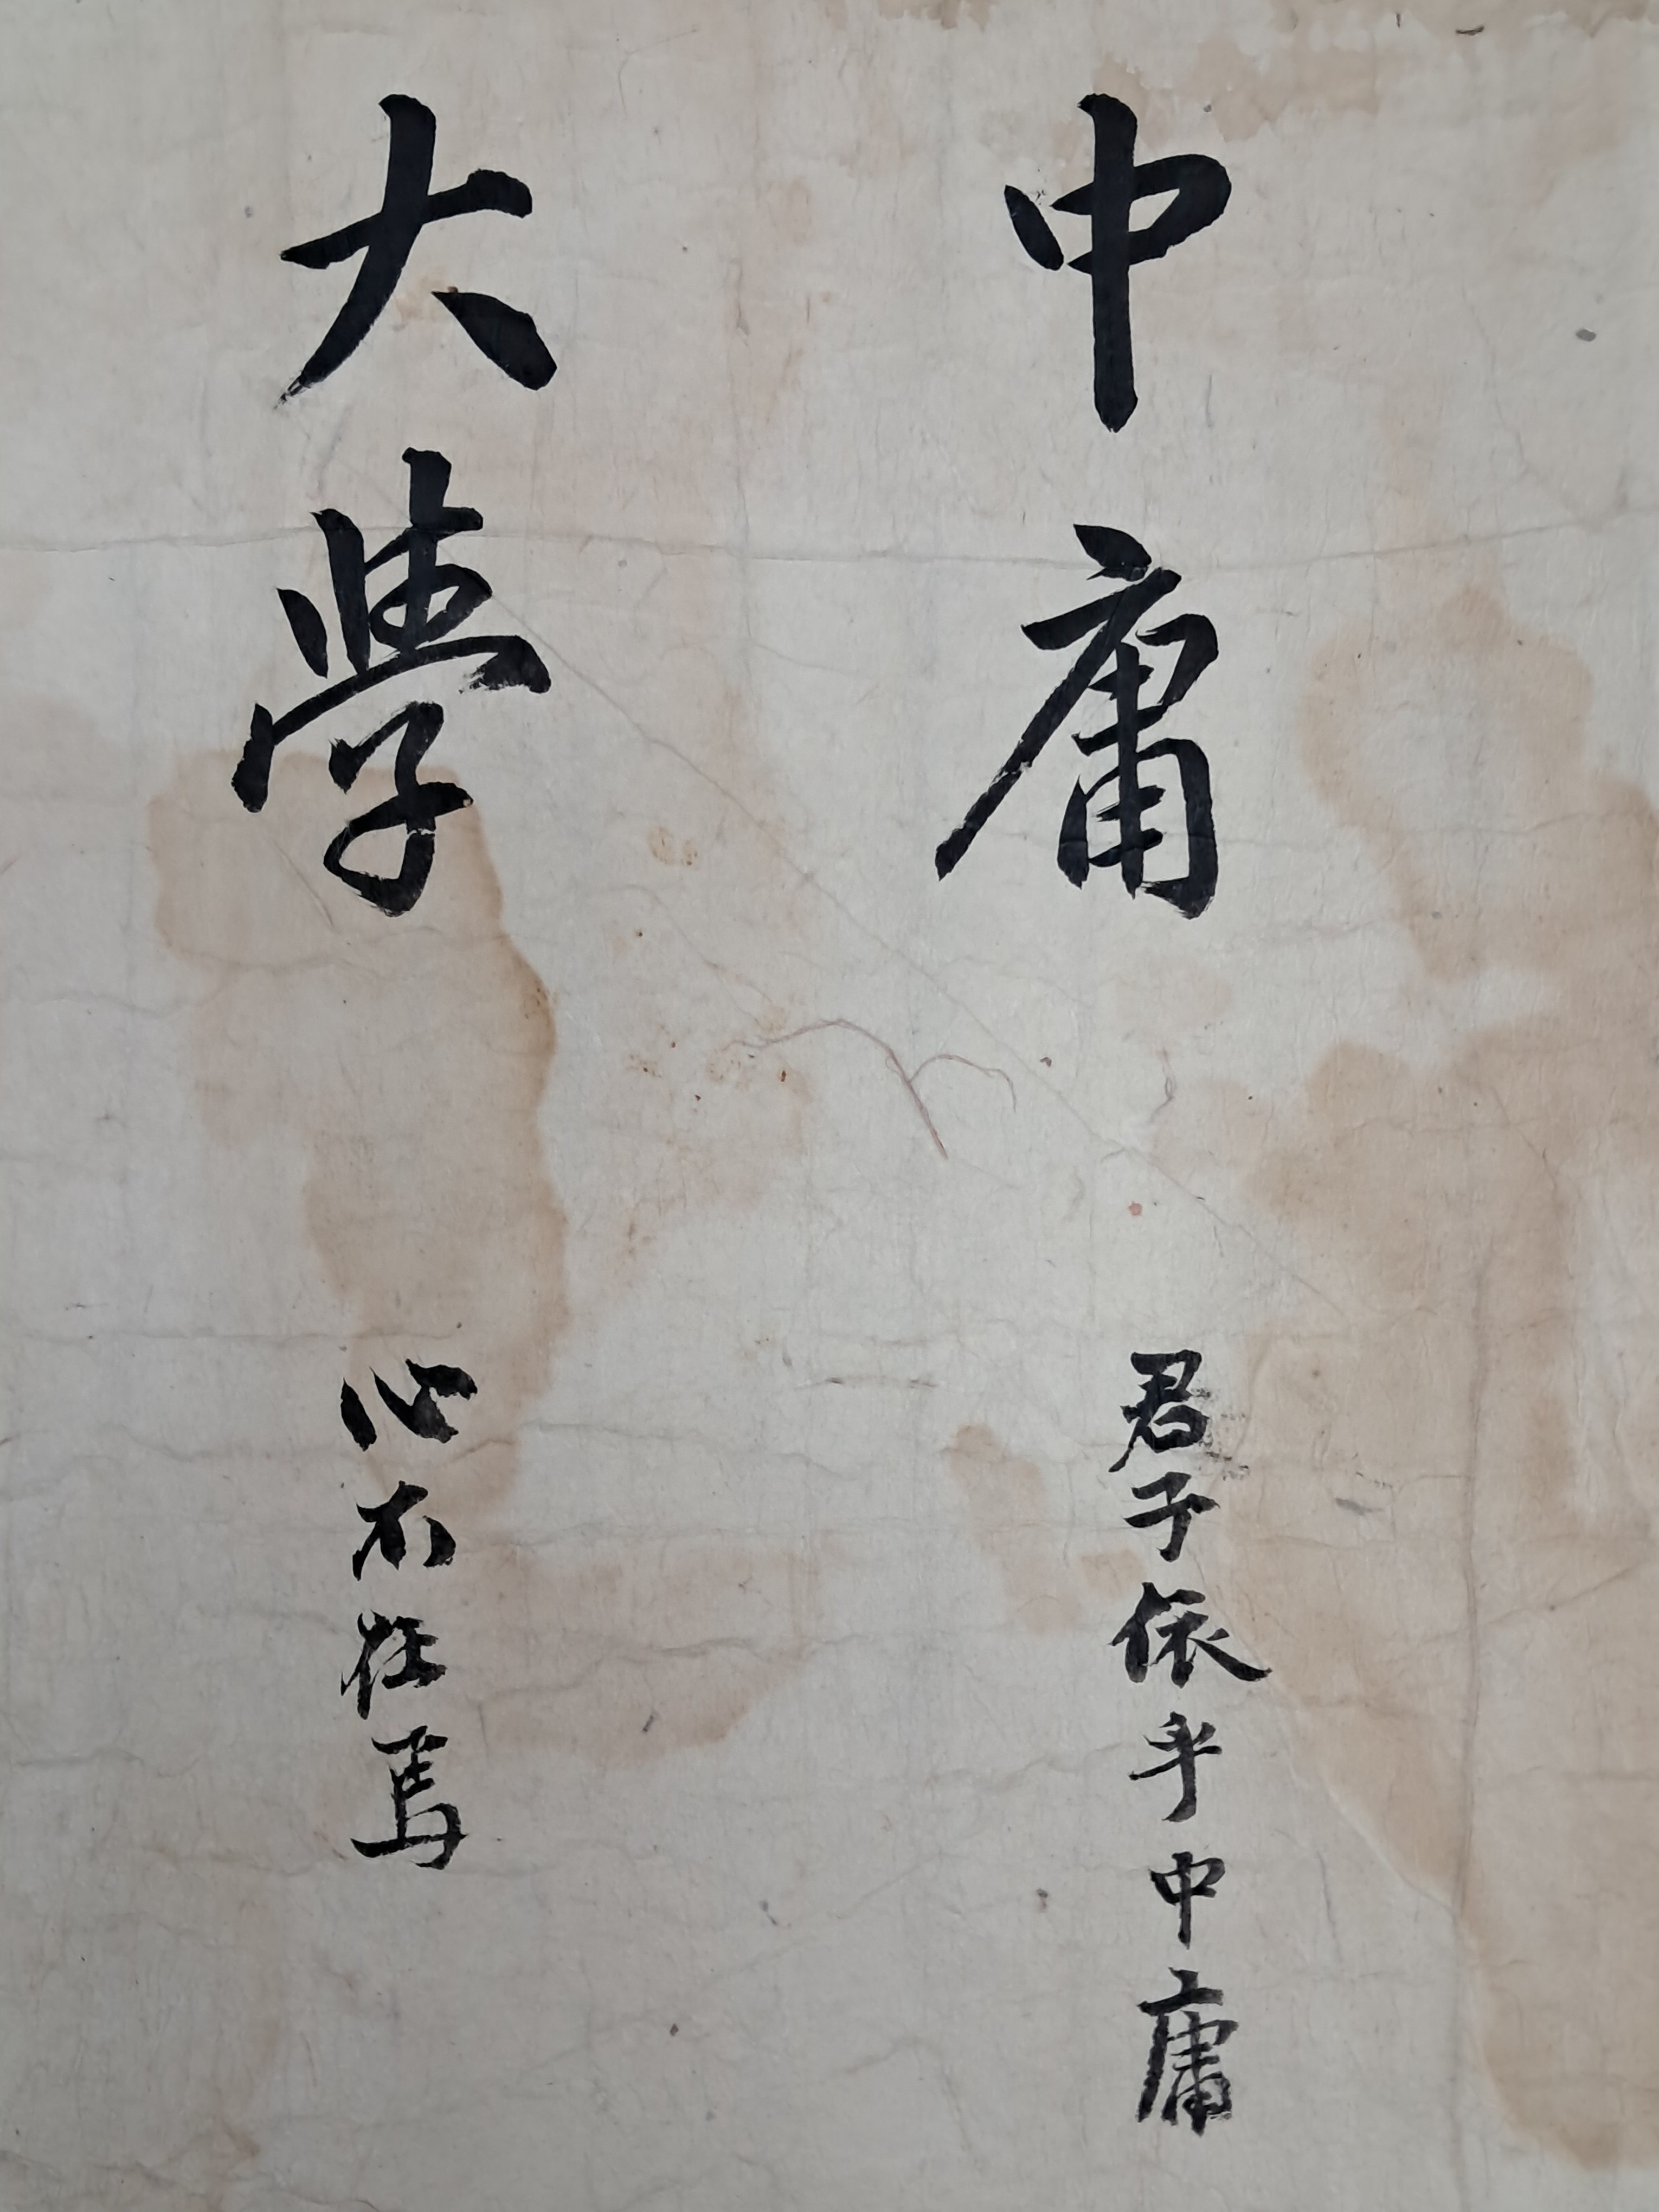 中庸
君子依乎中庸
大學
心不在焉